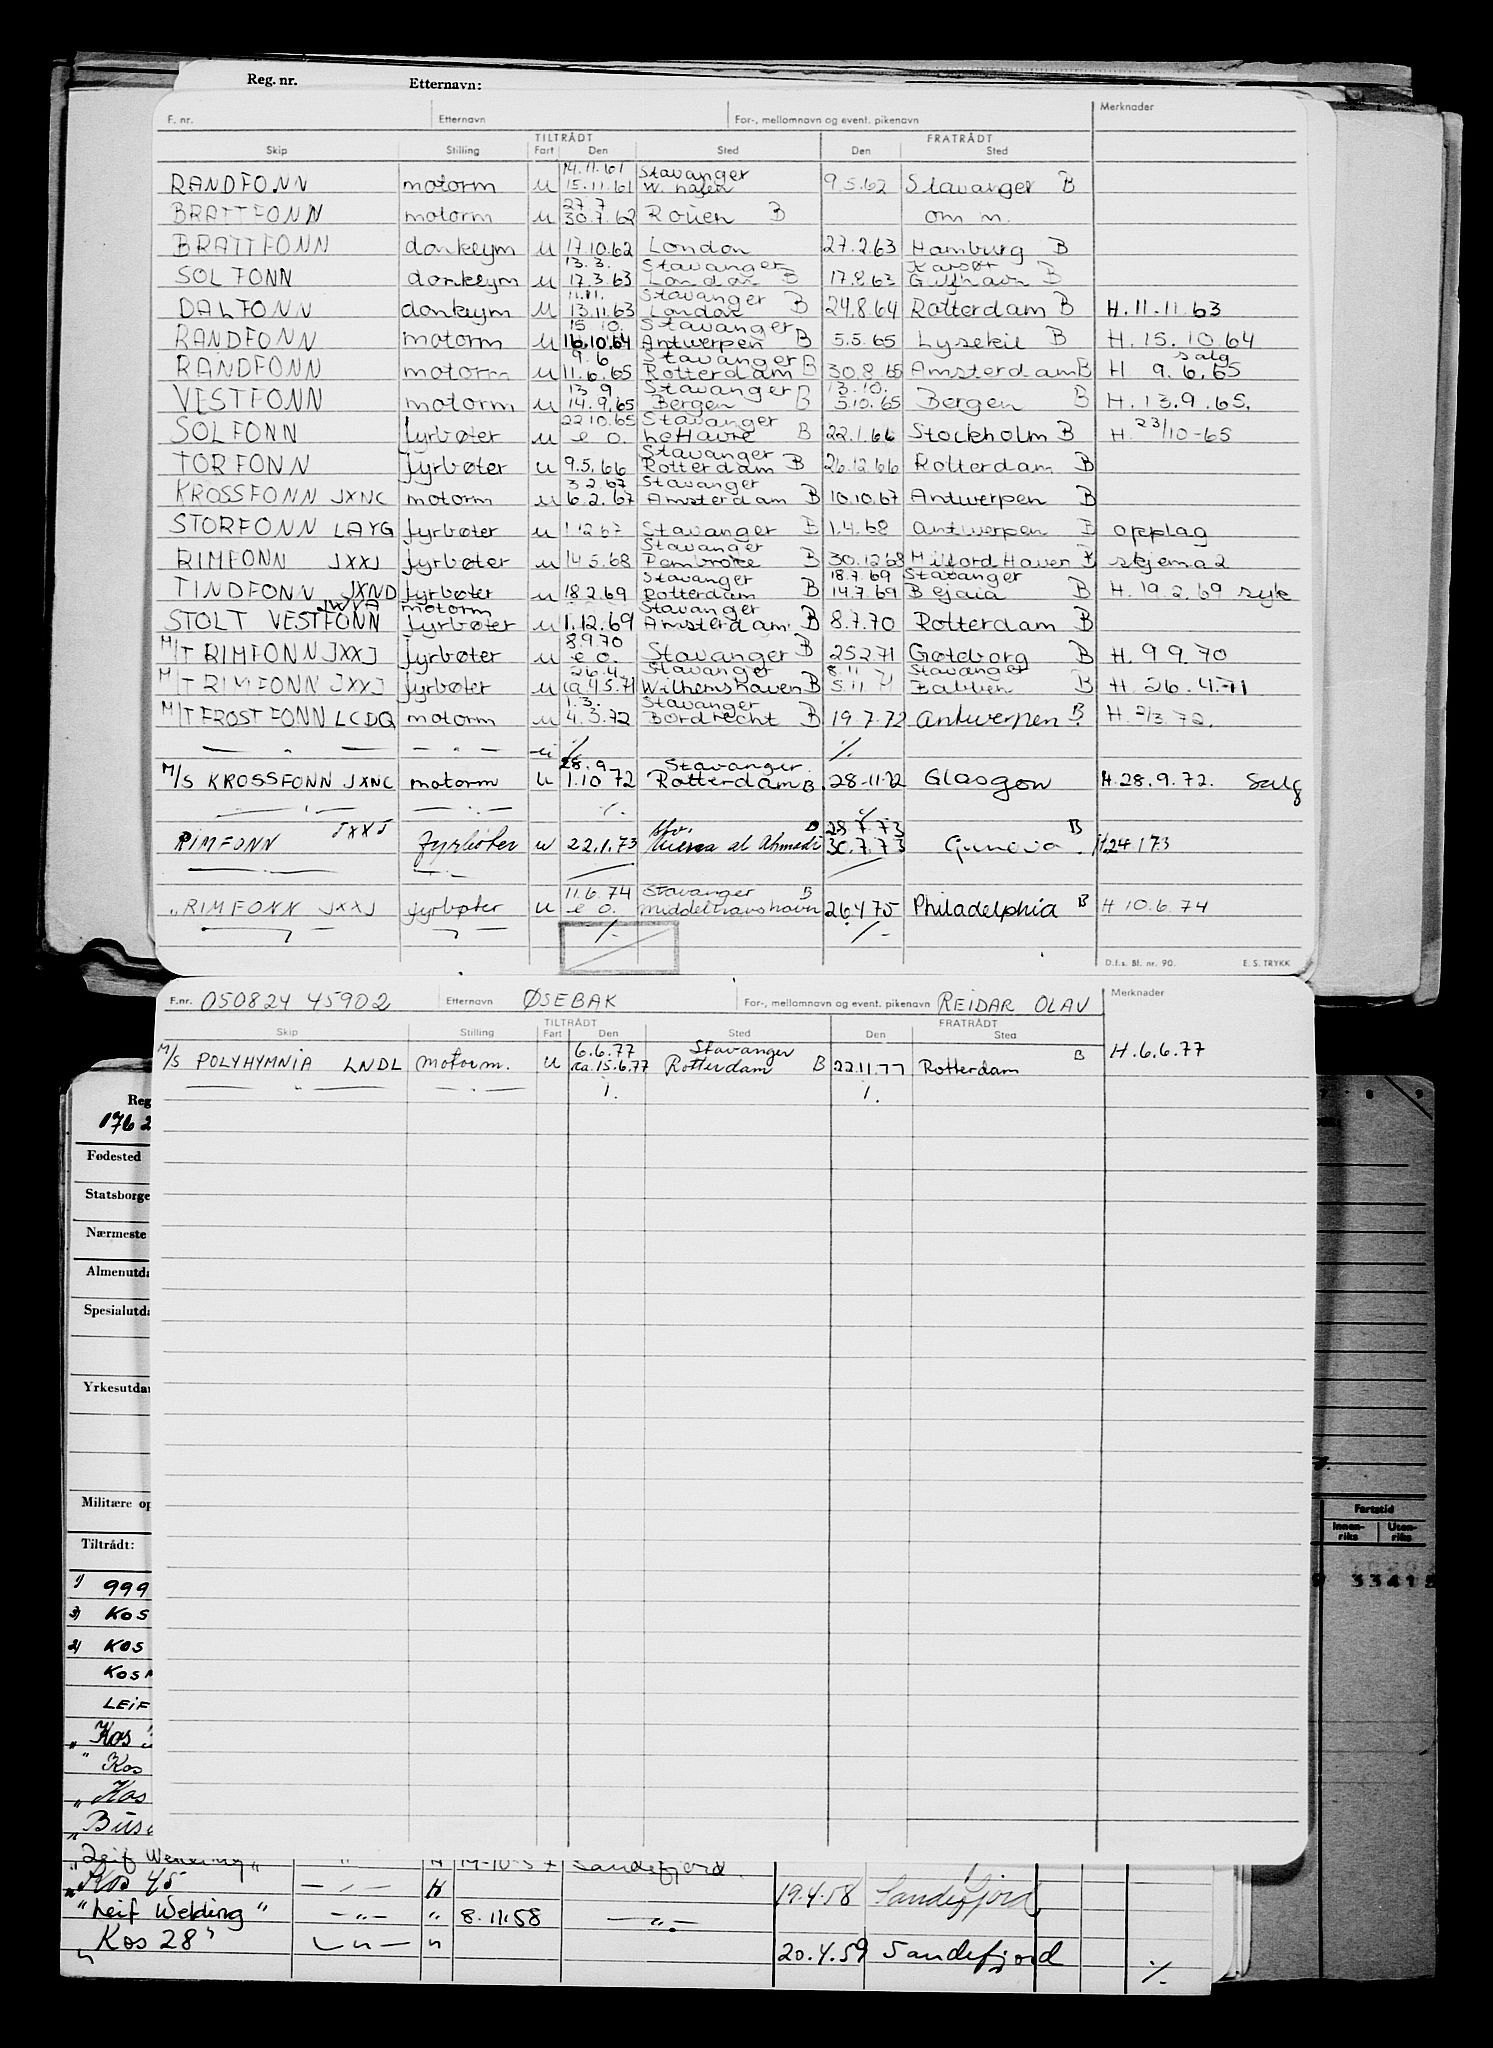 Reg. nr. Etternavn:
F. nr. Etternavn For-, mellomnavn og event. pikenavn Merknader
TILTRÅDT FRATRÅDT
Skip Stilling Fart Den Sted Den Sted
14.11.61 Stavanger
RANDFONN motorm u 15.11.61 W. hafen 9.5.62 Stavanger B
27.7
BRATTFONN motorm u 30.7.62 Rouen B om m.
BRATTFONN donkeym u 17.10.62 London 27.2.63 Hamburg B
13.3. Stavanger
SOLFONN donkeym u 17.3.63 London B 17.8.63 B
11.11. Stavanger
DALFONN donkeym u 13.11.63 London B 24.8.64 Rotterdam B H. 11.11.63
15 10. Stavanger
RANDFONN motorm u 16.10.64 Antwerpen B 5.5.65 Lysekil B H. 15.10.64
9.6 Stavanger salg
RANDFONN motorm u 11.6.65 Rotterdam B 30.8.65 Amsterdam B H 9.6.65
13 9 Stavanger 13.10.
VESTFONN motorm u 14.9.65 Bergen B 5.10.65 Bergen B H. 13.9.65.
22 10.65 Stavanger
SOLFONN fyrbøter u e o. Le Havre B 22.1.66 Stockholm B H. 23/10-65
Stavanger
TORFONN fyrbøter u 9.5.66 Rotterdam B 26.12.66 Rotterdam B
3 2.67 Stavanger
KROSSFONN JXNC motorm u 6.2.67 Amsterdam B 10.10.67 Antwerpen B
STORFONN LAYG fyrbøter u 1.12 67 Stavanger B 1.4.68 Antwerpen B opplag
Stavanger
RIMFONN JXXJ fyrbøter u 14 5.68 Pembroke B 30.12 68 Milford Haven B skjema 2
Stavanger 18.7.69 Stavanger
TINDFONN JXND fyrbøter u 18.2.69 Rotterdam B 14.7.69 Bejaia B H. 19.2.69 syk
JWVA motorm Stavanger
STOLT VESTFONN fyrbøter u 1.12.69 Amsterdam. B 8.7.70 Rotterdam B
8.9.70
M/T RIMFONN JXXJ fyrbøter u e o. Stavanger B 25 2.71 Gøteborg B H. 9 9.70
26.4. Stavanger 8.11 Stavanger
M/T RIMFONN JXXJ fyrbøter u ca 4.5.71 Wilhemshaven B 5.11 71 B H. 26.4.71
1.3. Stavanger
M/T FROSTFONN LCDQ motorm u 4.3.72 Dordrecht B 19.7.72 Antwerpen B H. 2/3.72.
— " — — " — u ./. ./.
28.9 Stavanger
M/S KROSSFONN JXNC motorm u 1.10 72 Rotterdam B 28-11-72 Glasgow H.28.9.72. Salg
— " — — " — ./. ./.
Stv. B 28 7.73
RIMFONN JXXJ fyrbøter u 22.1.73 Mena al Ahmadi 30.7.73 Genova B H24 173
11.6.74 Stavanger B
" RIMFONN JXXJ fyrbøter u e o. Middelhavshavn 26.4 75 Philadelphia B H 10.6.74
./. ./.
D.f.s. Bl. nr. 90. E. S. TRYKK
F.nr. 050824 45902 Etternavn ØSEBAK For-, mellomnavn og event. pikenavn REIDAR OLAV Merknader
TILTRÅDT FRATRÅDT
Skip Stilling Fart Den Sted Den Sted
6.6.77 Stavanger
M/S POLYHYMNIA LNDL motorm. u ca.15.6.77 Rotterdam B 22.11.77 Rotterdam B H.6.6.77
— " — — " — /. /.
Reg
176 2
Fødested
Statsborge
Nærmeste
Almenutda
Spesialutda
Yrkesutdan
Militære op
Fartstid
Innen-riks Uten-riks
Tiltrådt:
1) 999 33415
3) KOS
2) KOS
KOS
LEIF
" Kos
" Kos
" Kos
" Bus
" Leif Welding " " H 19-10-57 Sandefjord
" Kos 45 — " — H 19.4.58 Sandefjord
" Leif Welding " — " — " 8.11.58 — " —
" Kos 28 " — " — " 20.4.59 Sandefjord ./.